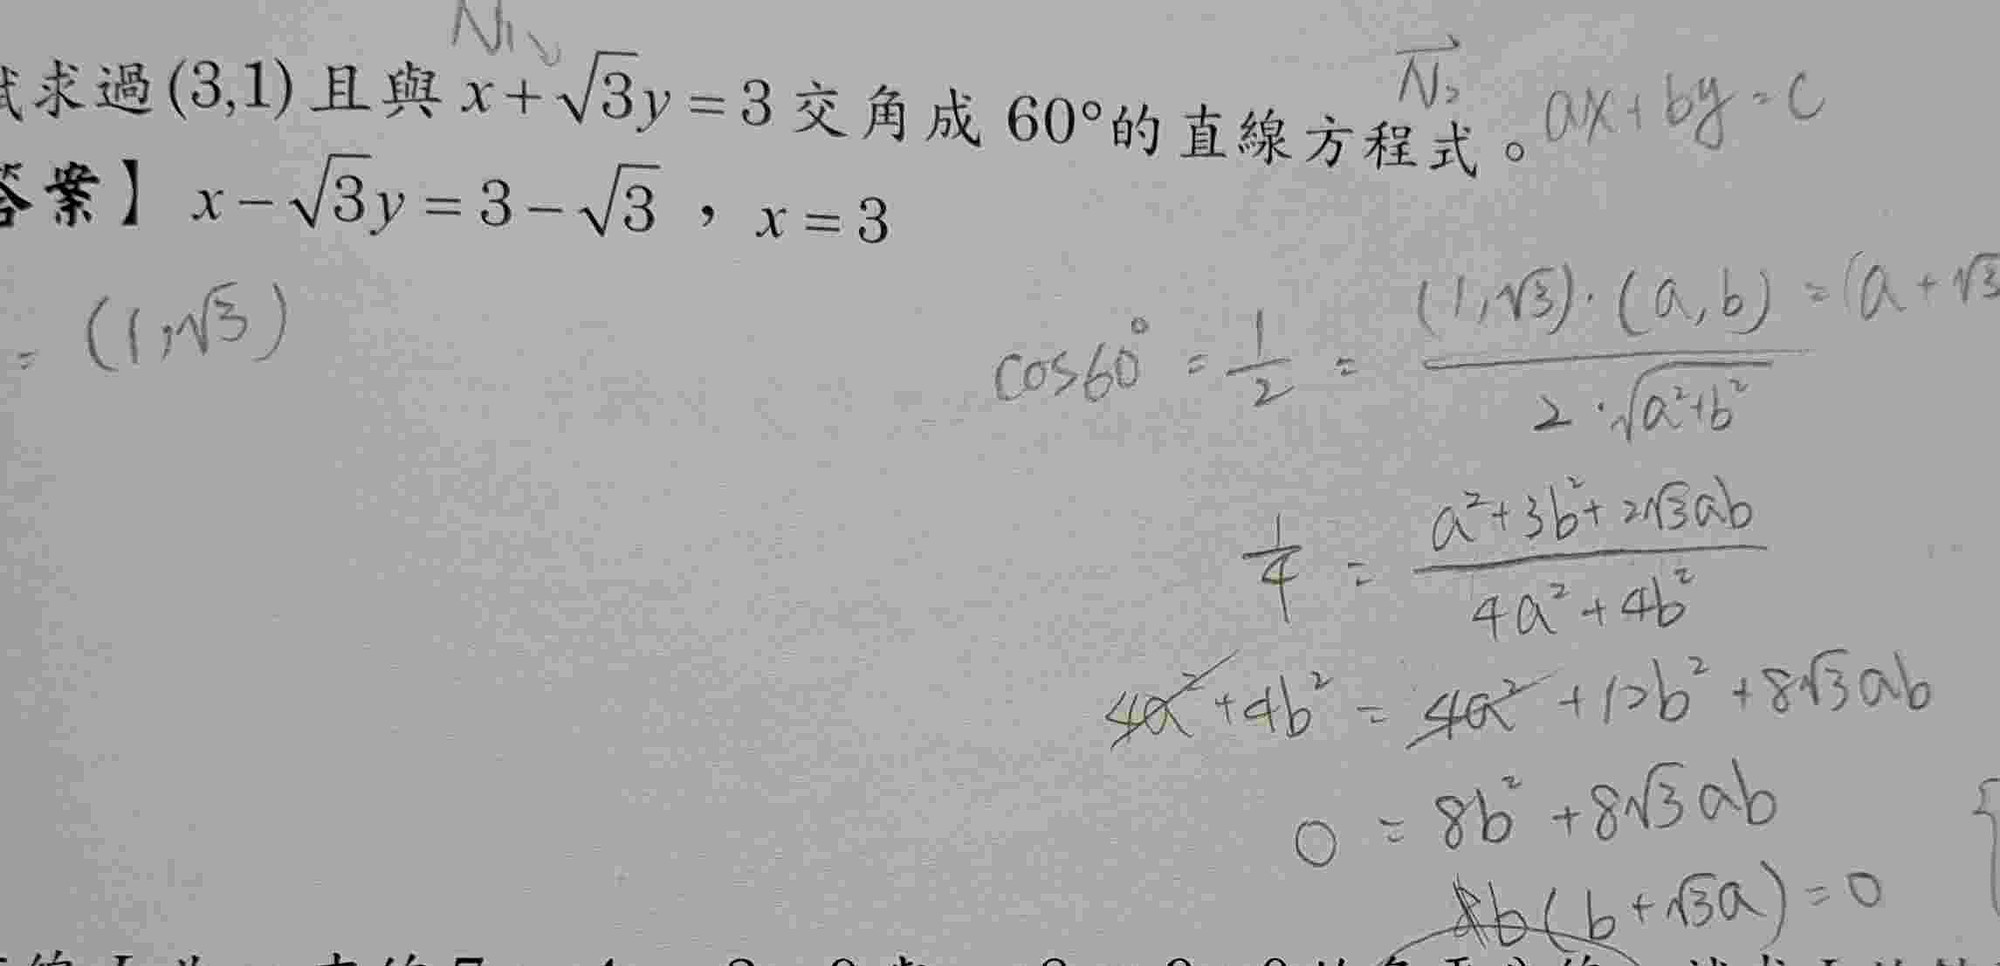 N₁
試求過(3,1)且與 x+√3y=3 交角成 60°的直線方程式。 N₂ ax+by=c
答案】 x-√3y=3-√3,x=3
= (1,√3)
cos60° = 1/2 = (1,√3)·(a,b) / 2·√a²+b² = (a+√3
1/4 = a²+3b²+2√3ab / 4a²+4b²
4a²+4b² = 4a²+12b²+8√3ab
0 = 8b²+8√3ab
8b(b+√3a)=0